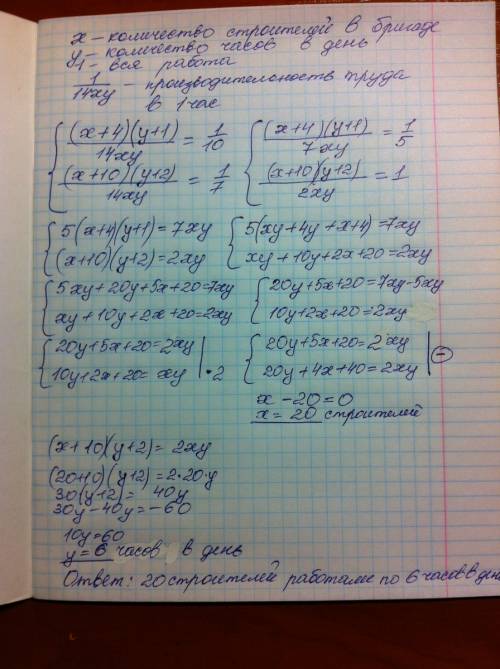 x – количество строителей в бригаде
y – количество часов в день
1 – вся работа
1/14xy – производительность труда
в 1 час
{ (x+4)(y+1)/14xy = 1/10 { (x+4)(y+1)/7xy = 1/5
(x+10)(y+2)/14xy = 1/7 (x+10)(y+2)/2xy = 1
{ 5(x+4)(y+1)=7xy { 5(xy+4y+x+4)=7xy
(x+10)(y+2)=2xy xy+10y+2x+20=2xy
{ 5xy+20y+5x+20=7xy { 20y+5x+20=7xy-5xy
xy+10y+2x+20=2xy 10y+2x+20=2xy
{ 20y+5x+20=2xy { 20y+5x+20=2xy
10y+2x+20= xy |·2 20y+4x+40=2xy | –
x -20=0
x= 20 строителей
(x+10)(y+2)= 2xy
(20+10)(y+2)=2·20·y
30(y+2)= 40y
30y-40y=-60
10y=60
y=6 часов в день
Ответ: 20 строителей работали по 6 часов в день